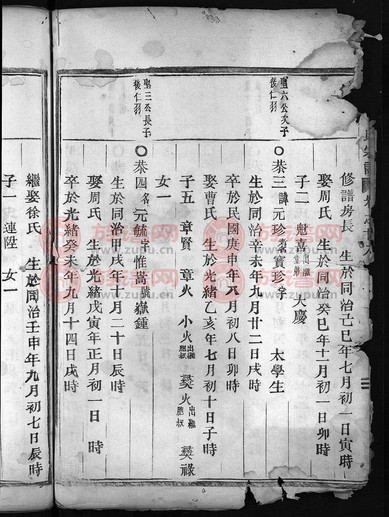 修譜房長 生於同治己巳年七月初一日寅時
娶周氏 生於同治癸巳年十一月初一日卯時
子二 魁喜 大慶
聖六公次子
後仁羽
○恭三 諱元珍 名寶珍 字 太學生
生於同治辛未年九月廿二日戌時
卒於民國庚申年八月初八日卯時
娶曹氏 生於光緒乙亥年七月初十日子時
子五 章賢 章火 小火 出繼胞叔 䕫火 出繼胞叔 䕫祿
女一
聖三公長子
後仁羽
○恭四 名元毓 字惟嵩 號嶽鍾
生於同治甲戌年十二月二十日辰時
娶周氏 生於光緒戊寅年正月初一日 時
卒於光緒癸未年九月十四日戌時
繼娶徐氏 生於同治壬申年九月初七日辰時
子一 連陞 女一
族譜网
www.zupu.cn